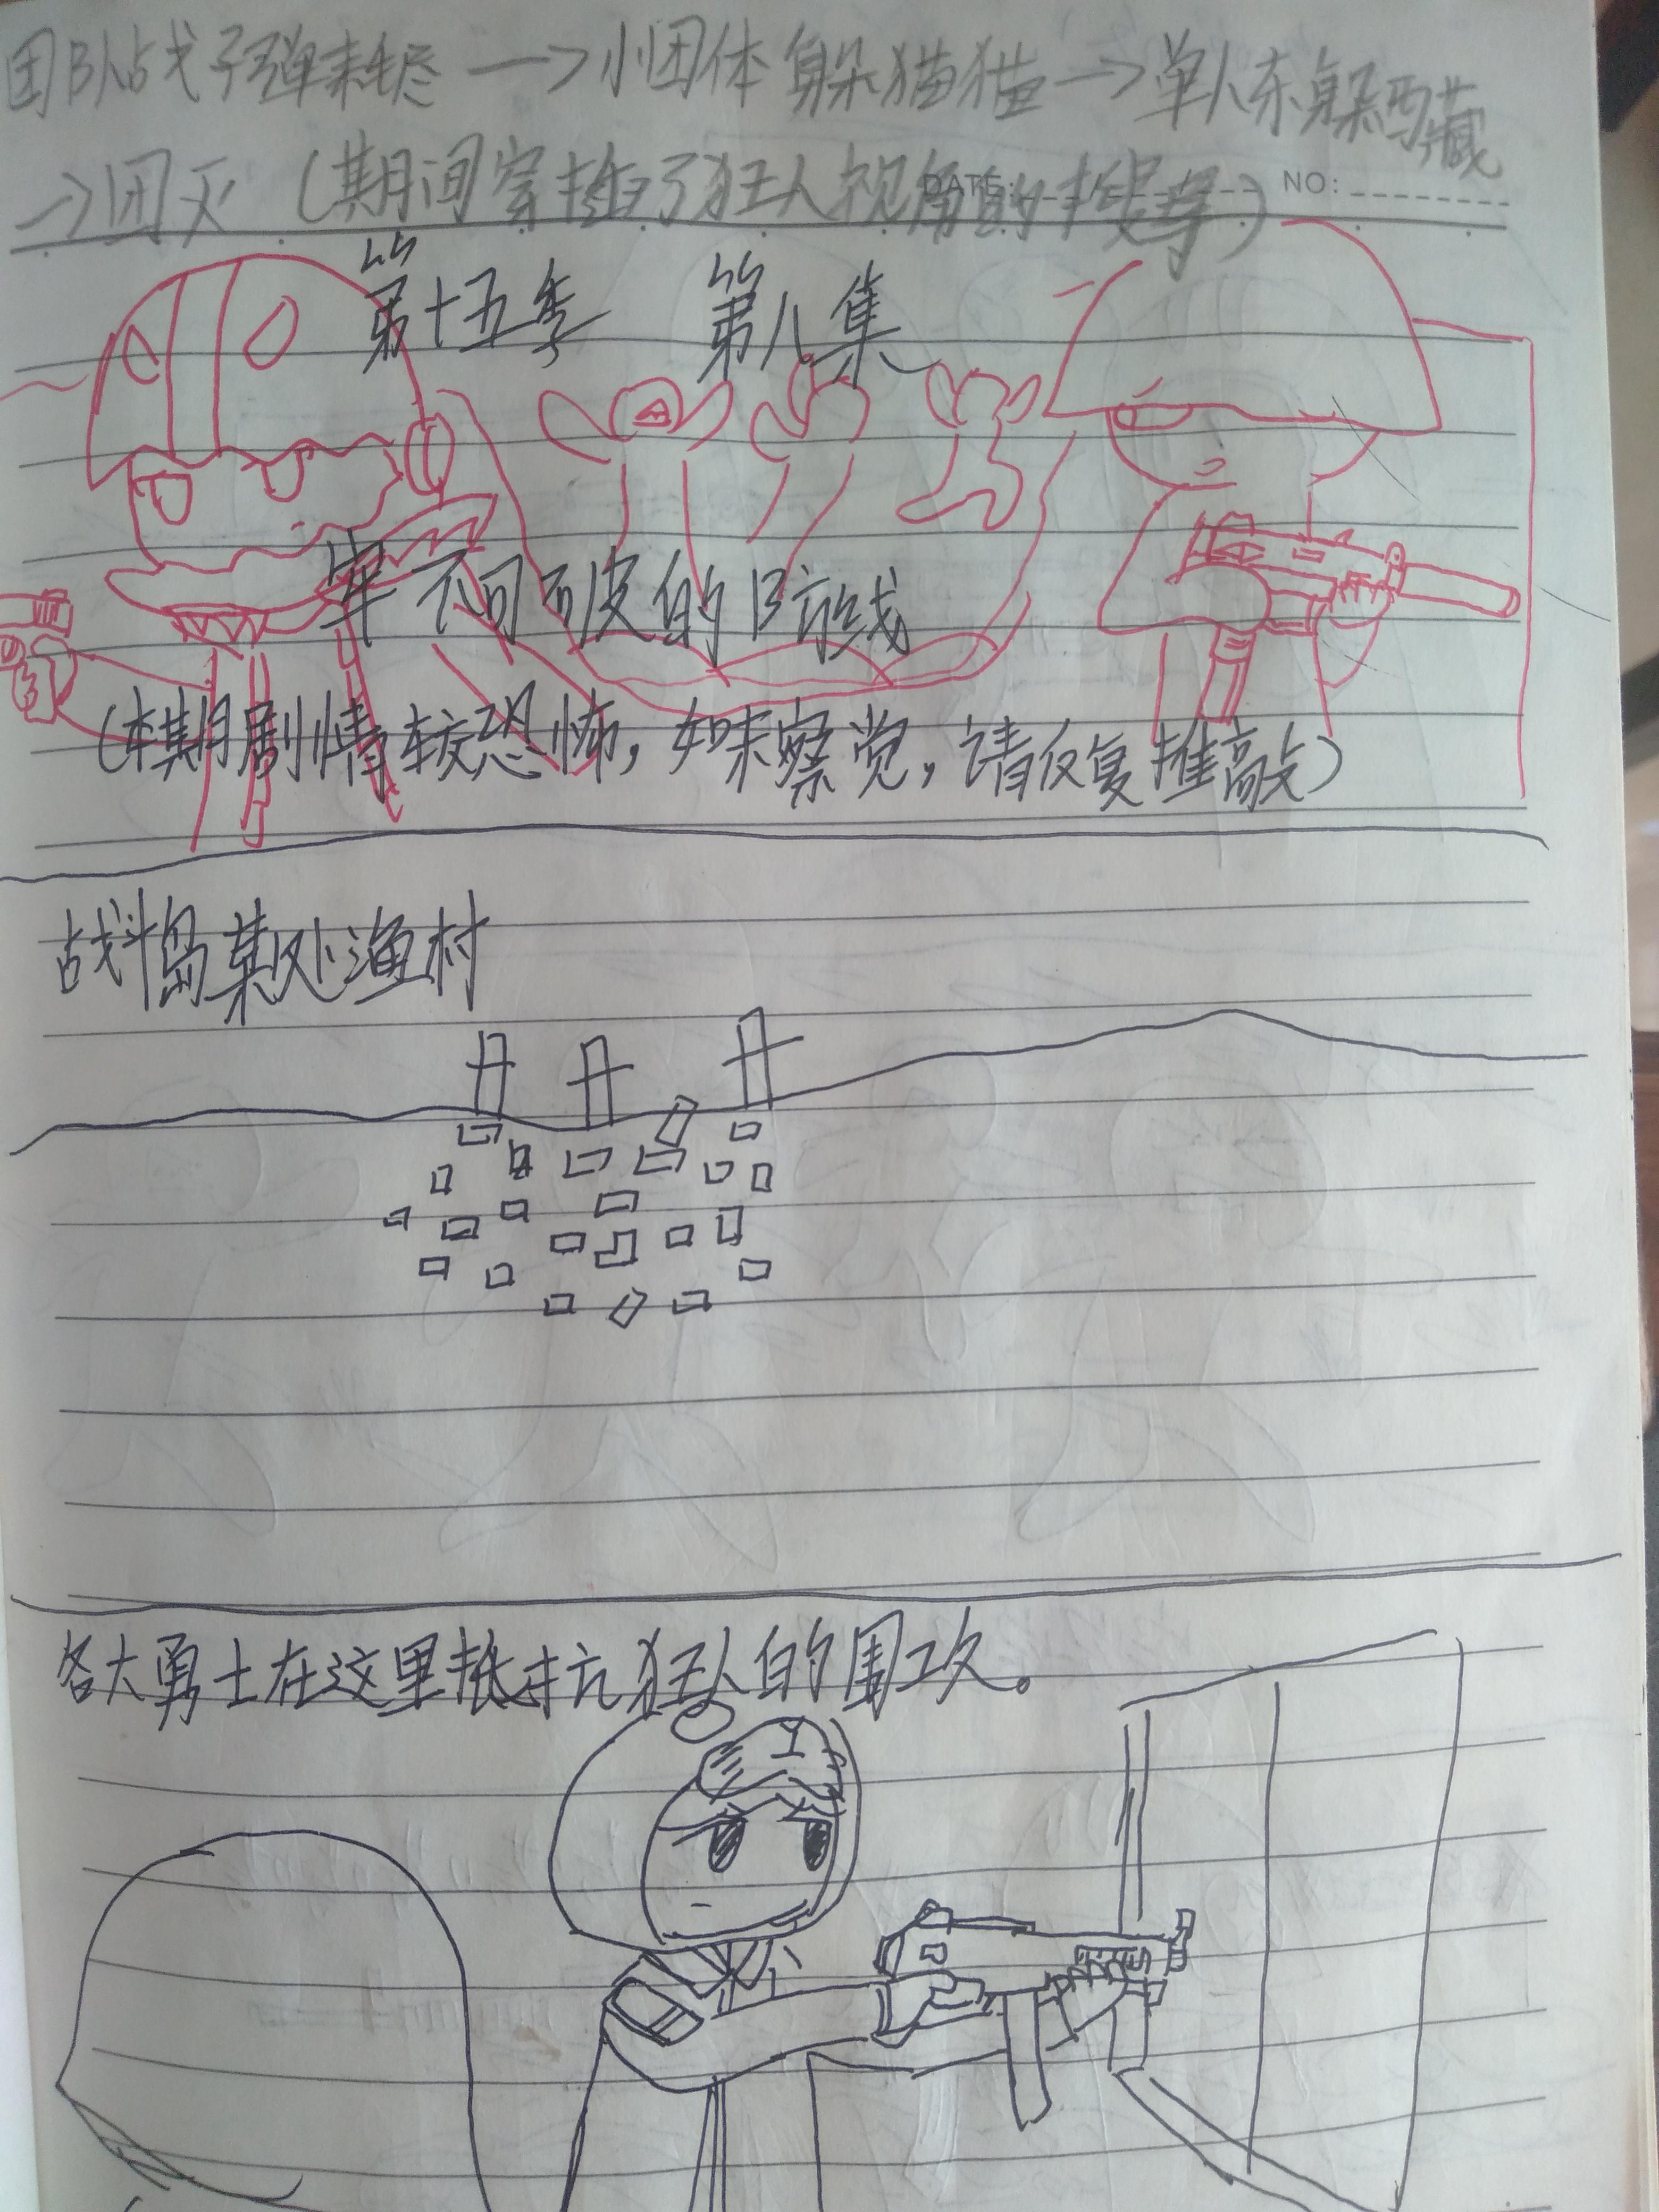 团队战子弹耗尽→小团体躲猫猫→单人东躲西藏
→团灭（期间穿插了狂人视角的搜寻）
DATE: NO:
第十五季 第八集
牢不可破的防线
（本期剧情较恐怖，如未察觉，请反复推敲）
战斗岛某处渔村
各大勇士在这里抵抗狂人的围攻。